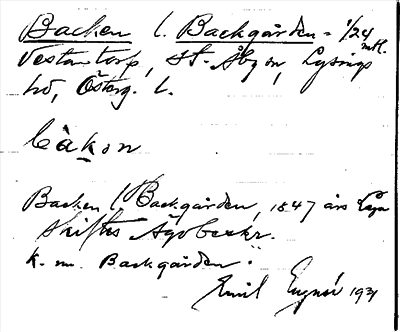 Backen l. Backgården = 1/24 mtl.
Vestantorp, St. Åby sn, Lysings
hd, Östg. l.
bàkən
Backen l. Backgården, 1847 års Laga
Skiftes Ägobeskr.
k. m. Backgården.
Emil 1931